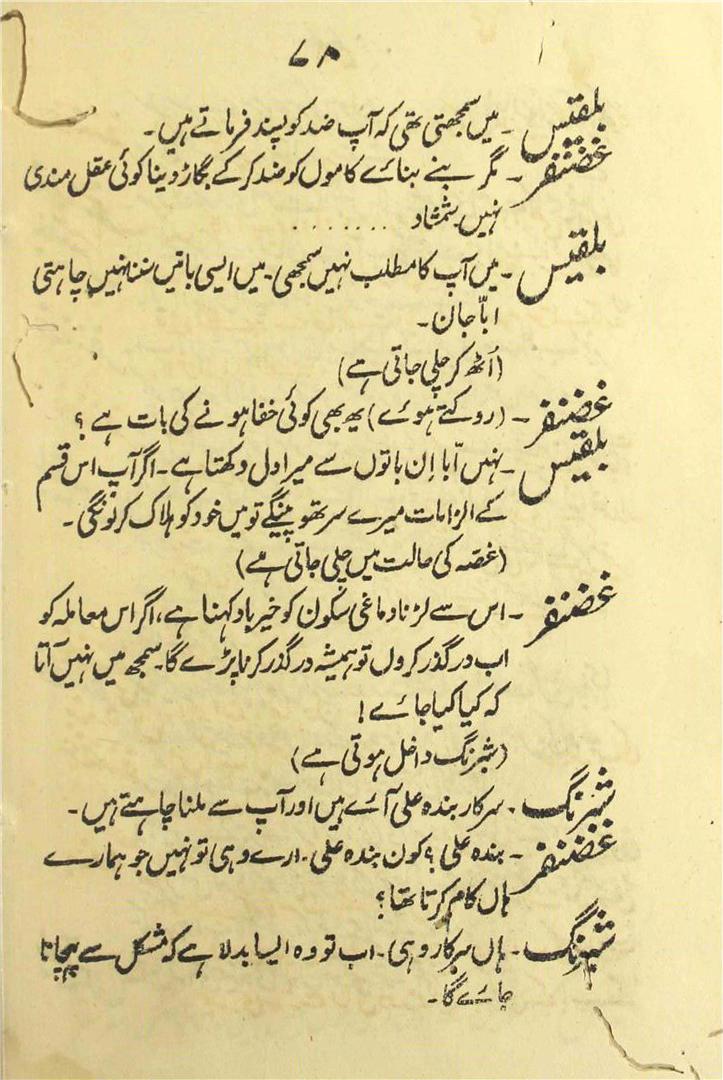 ۷۸
بلقیس ۔ میں سمجھتی تھی کہ آپ ضد کو پسند فرماتے ہیں۔
غضنفر ۔ مگر بنے بنائے کاموں کو ضد کرکے بگاڑ دینا کوئی عقل مندی
نہیں۔ شمشاد ........
بلقیس ۔ میں آپ کا مطلب نہیں سمجھی۔ میں ایسی باتیں سننا نہیں چاہتی
ابّا جان۔
(اُٹھ کر چلی جاتی ہے)
غضنفر ۔ (روکتے ہوئے) یہ بھی کوئی خفا ہونے کی بات ہے؟
بلقیس ۔ نہیں اَبا اِن باتوں سے میرا دل دکھتا ہے۔ اگر آپ اس قسم
کے الزامات میرے سر تھوپینگے تو میں خود کو ہلاک کرلونگی۔
(غصہ کی حالت میں چلی جاتی ہے)
غضنفر ۔ اس سے لڑنا دماغی سکون کو خیرباد کہنا ہے، اگر اس معاملہ کو
اب درگذر کروں تو ہمیشہ درگذر کرنا پڑے گا۔ سمجھ میں نہیں آتا
کہ کیا کیا جائے!
(شبرنگ داخل ہوتی ہے)
شبرنگ ۔ سرکار بندہ علی آئے ہیں اور آپ سے ملنا چاہتے ہیں۔
غضنفر ۔ بندہ علی؟ کون بندہ علی۔ ارے وہی تو نہیں جو ہمارے
ہاں کام کرتا تھا؟
شبرنگ ۔ ہاں سرکار وہی۔ اب تو وہ ایسا بدلا ہے کہ مشکل سے پہچانا
جائے گا۔